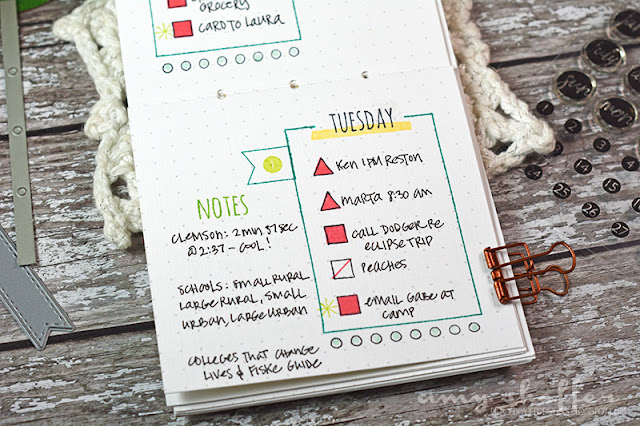 GROCERY
CARD TO LAURA
TUESDAY
1
KEN 1 PM RESTON
MARTA 8:30 AM
CALL DODGER-RE
ECLIPSE TRIP
PEACHES
EMAIL GABE AT
CAMP
NOTES
CLEMSON: 2 MIN 37 SEC
@ 2:37 - COOL!
SCHOOLS: SMALL RURAL
LARGE RURAL, SMALL
URBAN, LARGE URBAN
COLLEGES THAT CHANGE
LIVES & FISKE GUIDE
amy sheffer